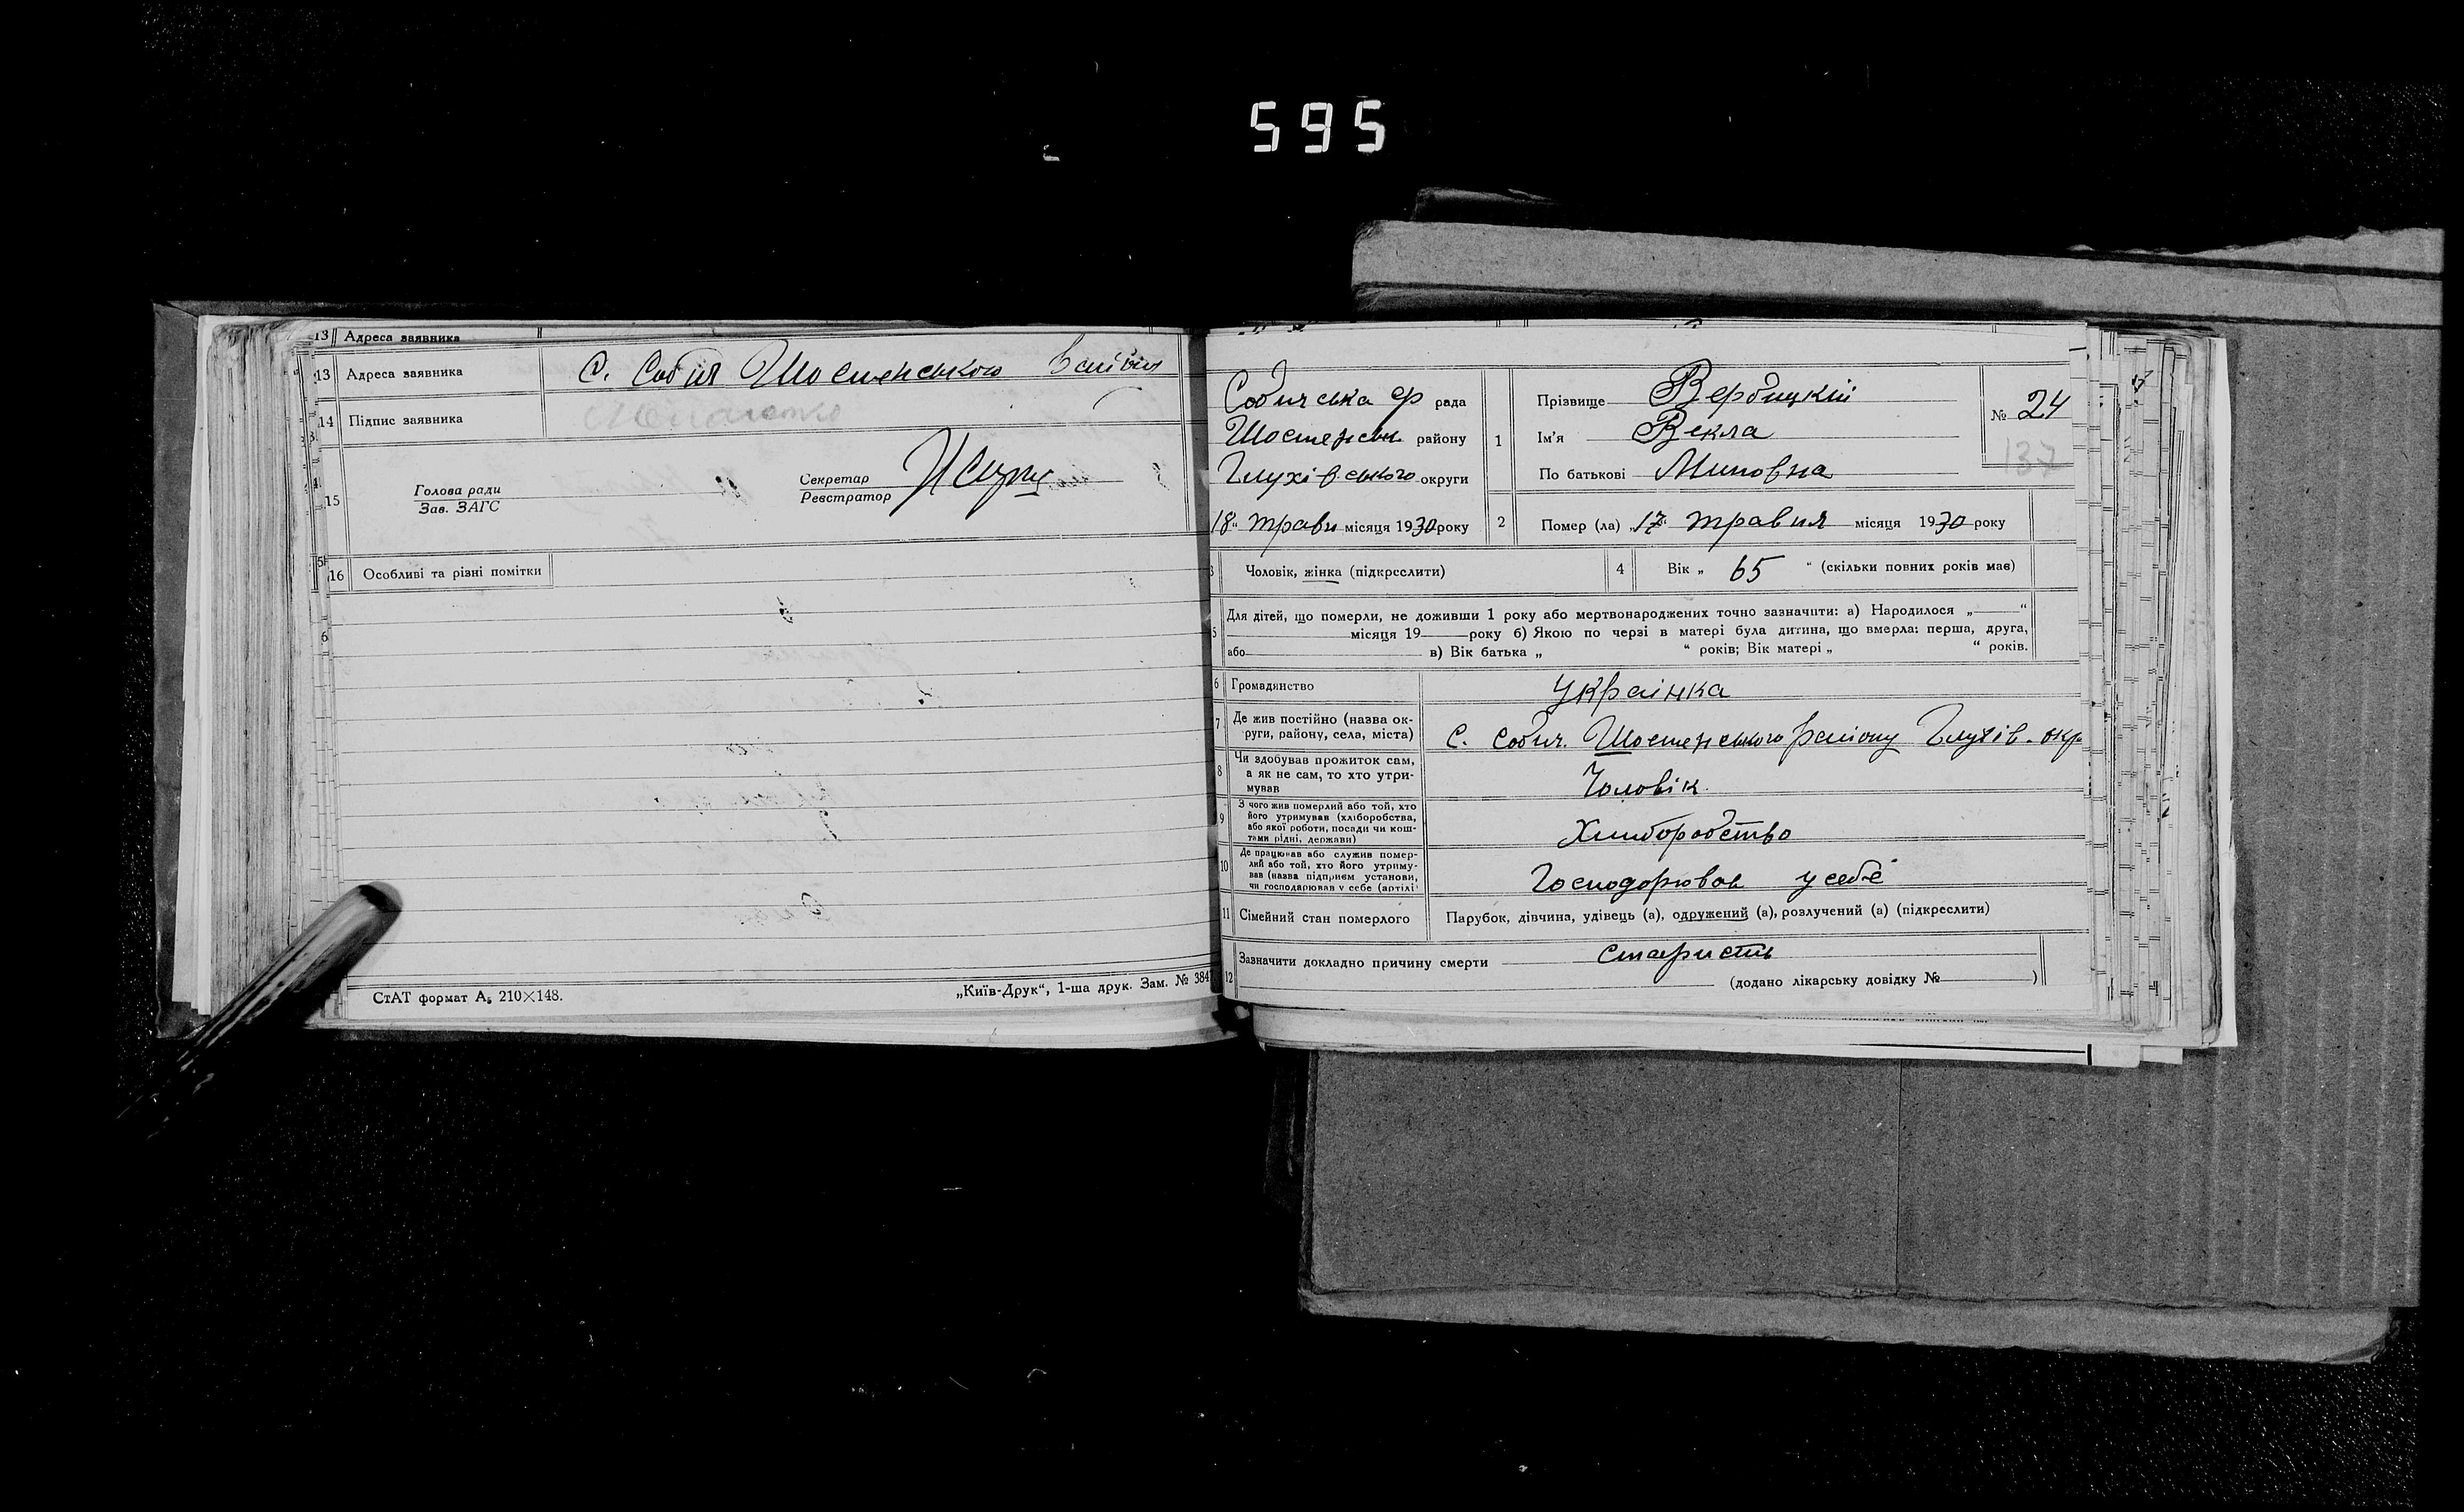 595
13 Адреса заявника
13 Адреса заявника С. Собич Шостенського
14 Підпис заявника
15 Голова ради
Зав. ЗАГС
Секретар
Реєстратор
16 Особливі та різні помітки
СтАТ формат А₅ 210×148.
„Київ-Друк“, 1-ша друк. Зам. № 3847
Собичська рада
Шостенськ району
Глухівського округи
18 “ трави місяця 1930 року
1 Прізвище Вербицкий
Ім'я Векла
По батькові
№ 24
137
2 Помер (ла) „17“ травня місяця 1930 року
3 Чоловік, жінка (підкреслити)
4 Вік „ 65 “ (скільки повних років має)
5 Для дітей, що померли, не доживши 1 року або мертвонароджених точно зазначити: а) Народилося „ “
місяця 19 року б) Якою по черзі в матері була дитина, що вмерла: перша, друга,
або в) Вік батька „ “ років; Вік матері „ “ років.
6 Громадянство Українка
7 Де жив постійно (назва ок-
руги, району, села, міста) С. Собич. Шостенського району Глухів. окр.
8 Чи здобував прожиток сам,
а як не сам, то хто утри-
мував Чоловік
9 З чого жив померлий або той, хто
його утримував (хліборобства,
або якої роботи, посади чи кош-
тами рідні, держави) Хлиборобство
10 Де працював або служив помер-
лий або той, хто його утриму-
вав (назва підприєм установи,
чи господарював у себе (артілі) Господорював у себе
11 Сімейний стан померлого Парубок, дівчина, удівець (а), одружений (а), розлучений (а) (підкреслити)
12 Зазначити докладно причину смерти Старисть
(додано лікарську довідку № )